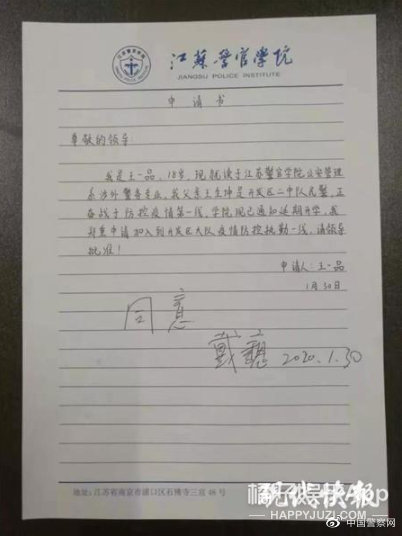 江苏警官学院
JIANGSU POLICE INSTITUTE
申请书
尊敬的领导:
我是王一品,18岁,现就读于江苏警官学院公安管理
系涉外警务专业,我父亲王生坤是开发区二中队民警,正
奋战于防控疫情第一线,学院现已通知延期开学,我
郑重申请加入到开发区大队疫情防控执勤一线,请领导
批准!
申请人:王一品
1月30日
同意
戴
2020.1.30
地址:江苏省南京市浦口区石佛寺三宫48号
现代快报
HAPPYJUZI.COM
@中国警察网